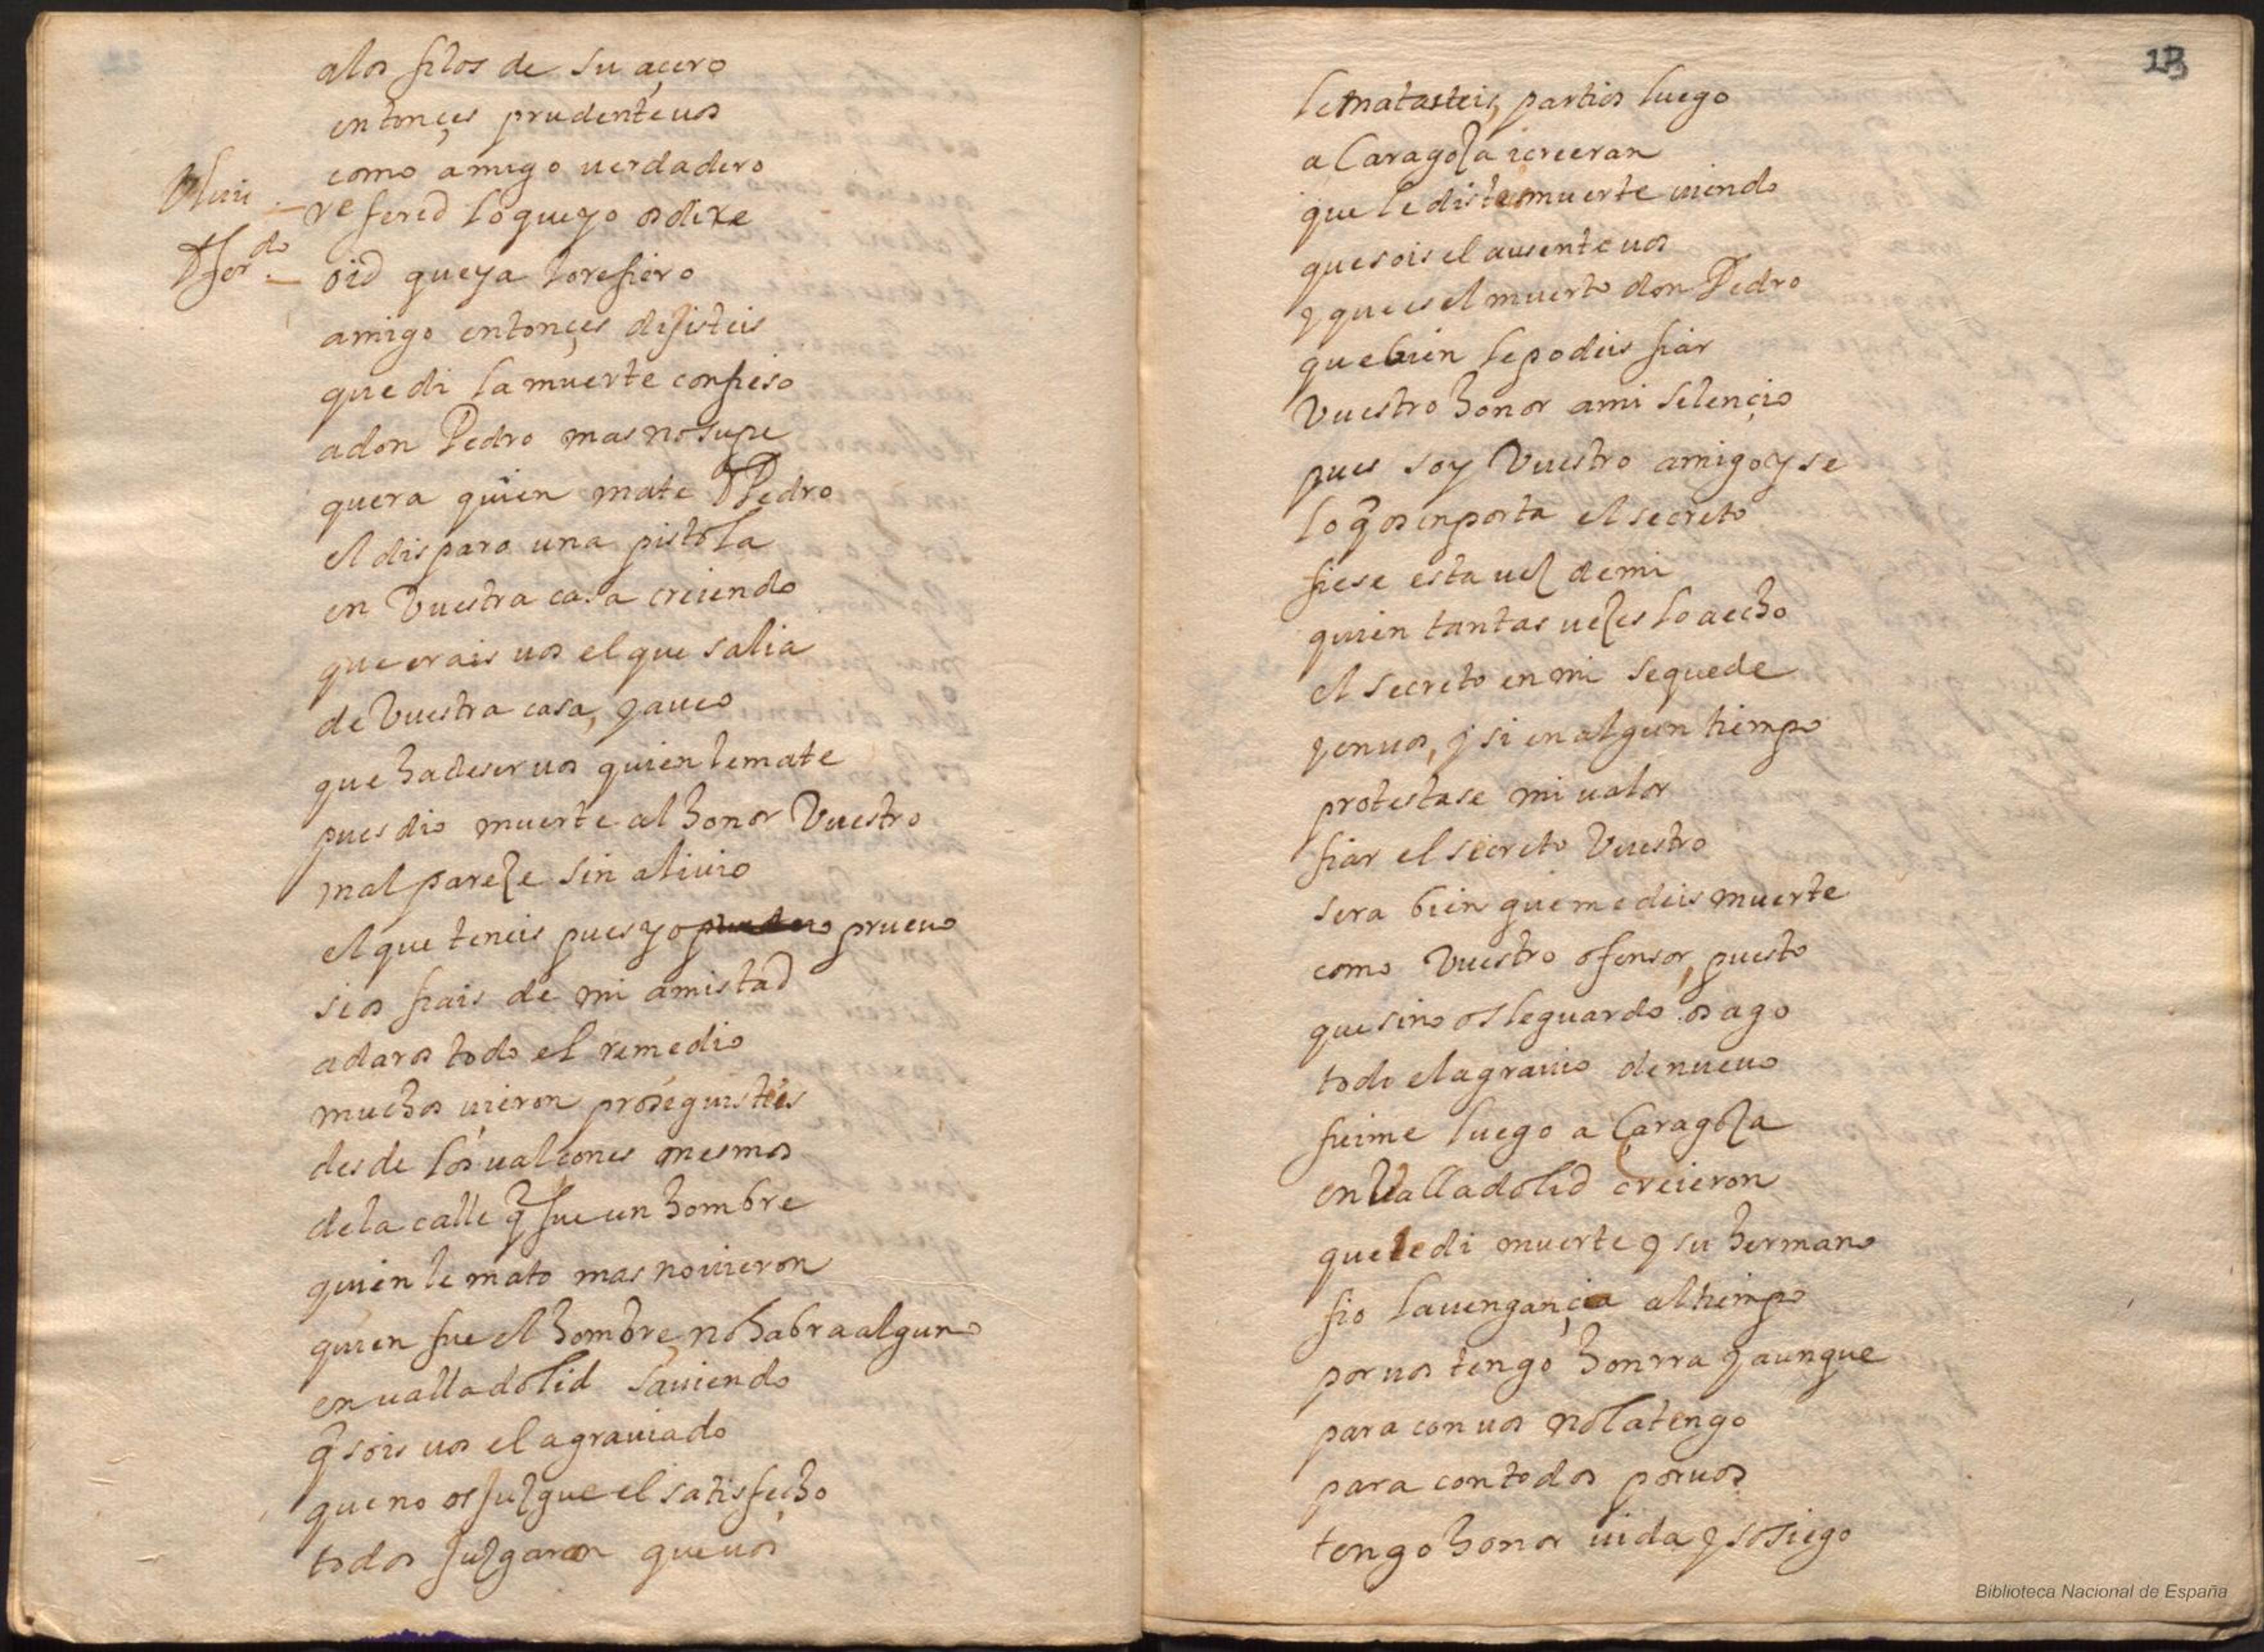 a los filos de su açero
entonçes prudente uos
como amigo uerdadero
referid lo que yo os dixe
D fer.do oid que ya lo refiero
amigo entonçes dijisteis
que di la muerte confieso
a don Pedro mas no supe
quera quien mate D Pedro
el disparo una pistola
en Vuestra casa creiendo
que erais uos el que salia
de Vuestra casa, y aueo
que ha de ser uos quien le mate
pues dio muerte al honor Vuestro
mal pareze sin aliuio
el que teneis pues yo prueuo
si os fiais de mi amistad
a daros todo el remedio
muchos uieron proseguisteis
desde los ualcones mesmos
de la calle q̃ fue un hombre
quien le mato mas no uieron
quien fue el hombre, no habra alguno
en ualladolid sauiendo
q̃ sois uos el agrauiado
que no os juzgue el satisfecho
todos juzgaron que uos
le matasteis, partios luego
a Caragoza i creeran
que le distes muerte uiendo
que sois el ausente uos
y que es el muerto don Pedro
que bien le podeis fiar
Vuestro honor a mi silençio
pues soy Vuestro amigo y se
lo q̃ os inporta el secreto
fiese esta uez de mi
quien tantas uezes lo a echo
el secreto en mi se quede
y en uos, y si en algun tiempo
protestase mi ualor
fiar el secreto Vuestro
sera bien que me deis muerte
como Vuestro ofensor, puesto
que sino os le guardo os ago
todo el agrauio de nueuo
fuime luego a Çaragoza
en Valladolid creieron
que le di muerte y su hermano
fio la uengança al tiempo
por uos tengo honrra y aunque
para con uos no la tengo
para con todos por uos
tengo honor uida y sosiego
13
Biblioteca Nacional de España